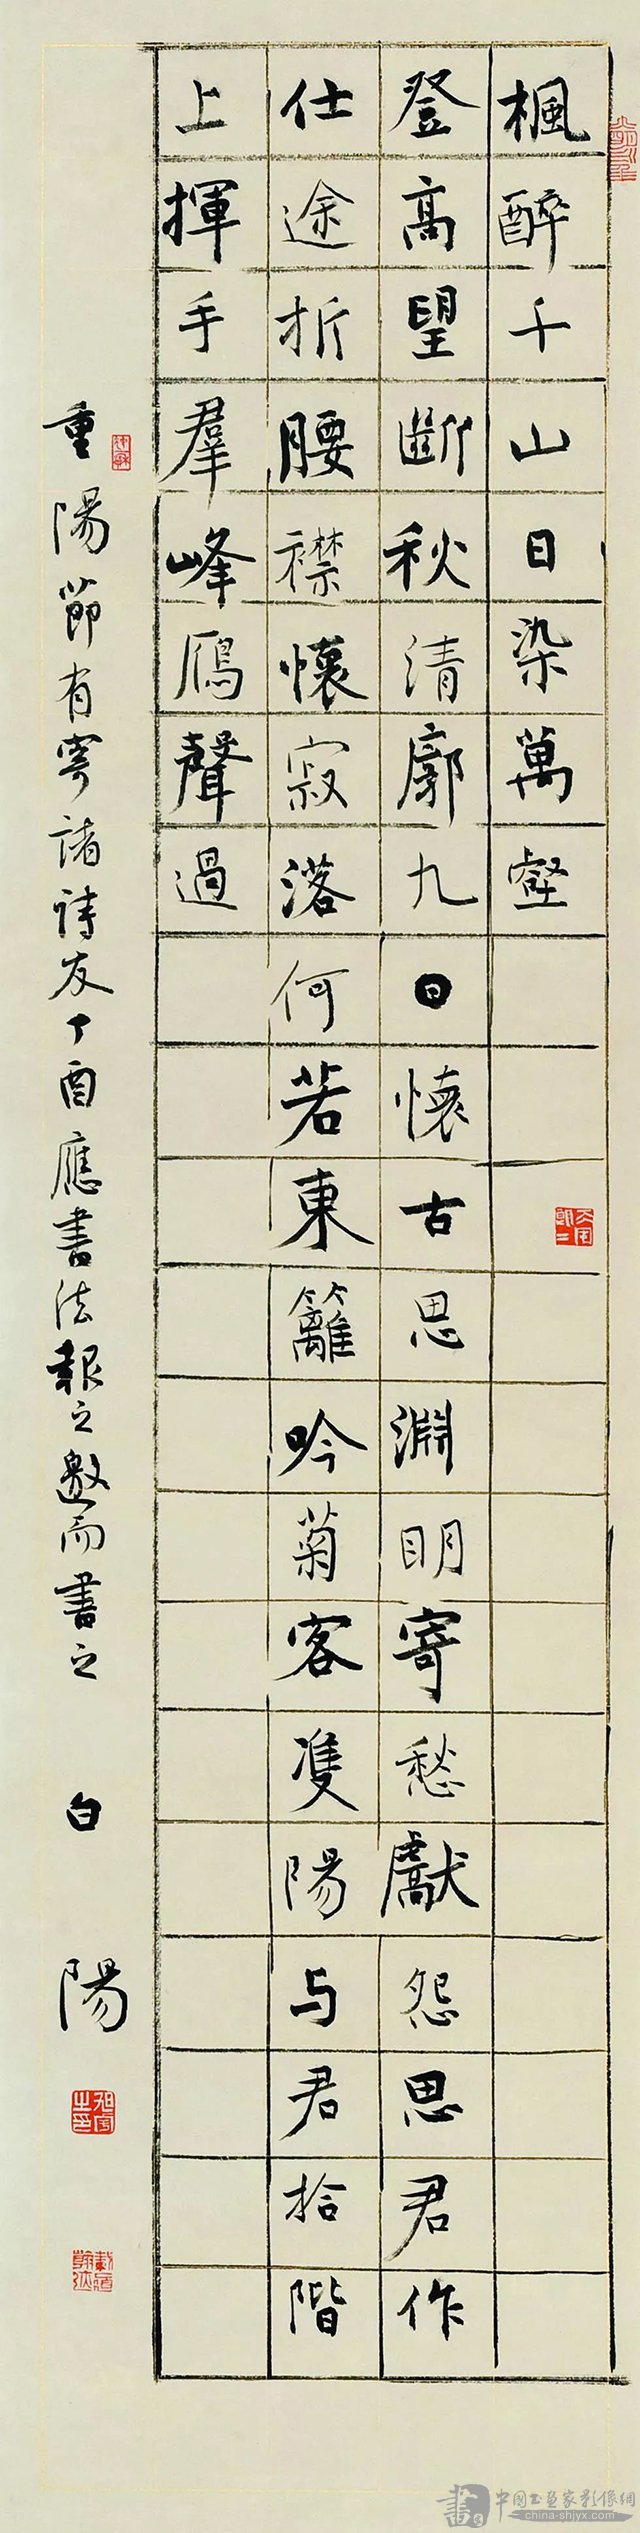 楓醉千山日染萬壑
登高望斷秋清廓九日懷古思淵明寄愁獻怨思君作
仕途折腰襟懷寂落何若東籬吟菊客隻陽与君拾階
上揮手羣峰鴈聲過
重陽節有寄諸詩友丁酉應書法報之邀而書之 白陽
中國书画家影像網
china-shjyx.com